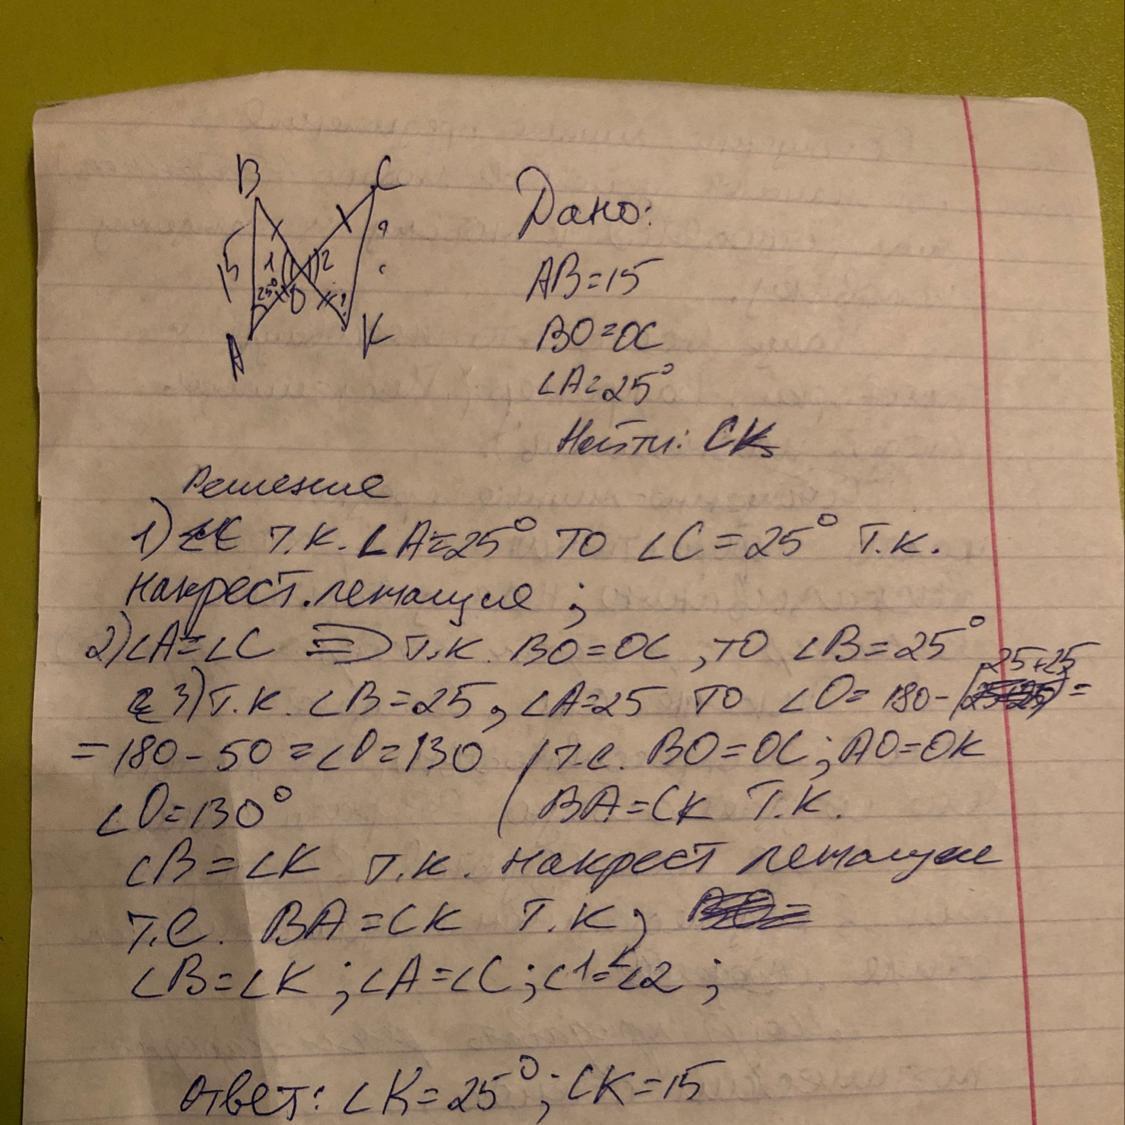 B C
15 1 2 ?
25° O ?
A K
Дано:
AB=15
BO=OC
∠A=25°
Найти: CK
Решение
1) т.к. ∠A=25° то ∠C=25° т.к.
накрест.лежащие ;
2)∠A=∠C т.к. BO=OC, то ∠B=25°
3)т.к. ∠B=25, ∠A=25 то ∠O= 180-(25+25)=
=180-50=∠O=130 (т.е. BO=OC; AO=OK
∠O=130° ( BA=CK т.к.
∠B=∠K т.к. накрест лежащие
т.е. BA=CK т.к,
∠B=∠K; ∠A=∠C; ∠1=∠2;
Ответ: ∠K=25°; CK=15